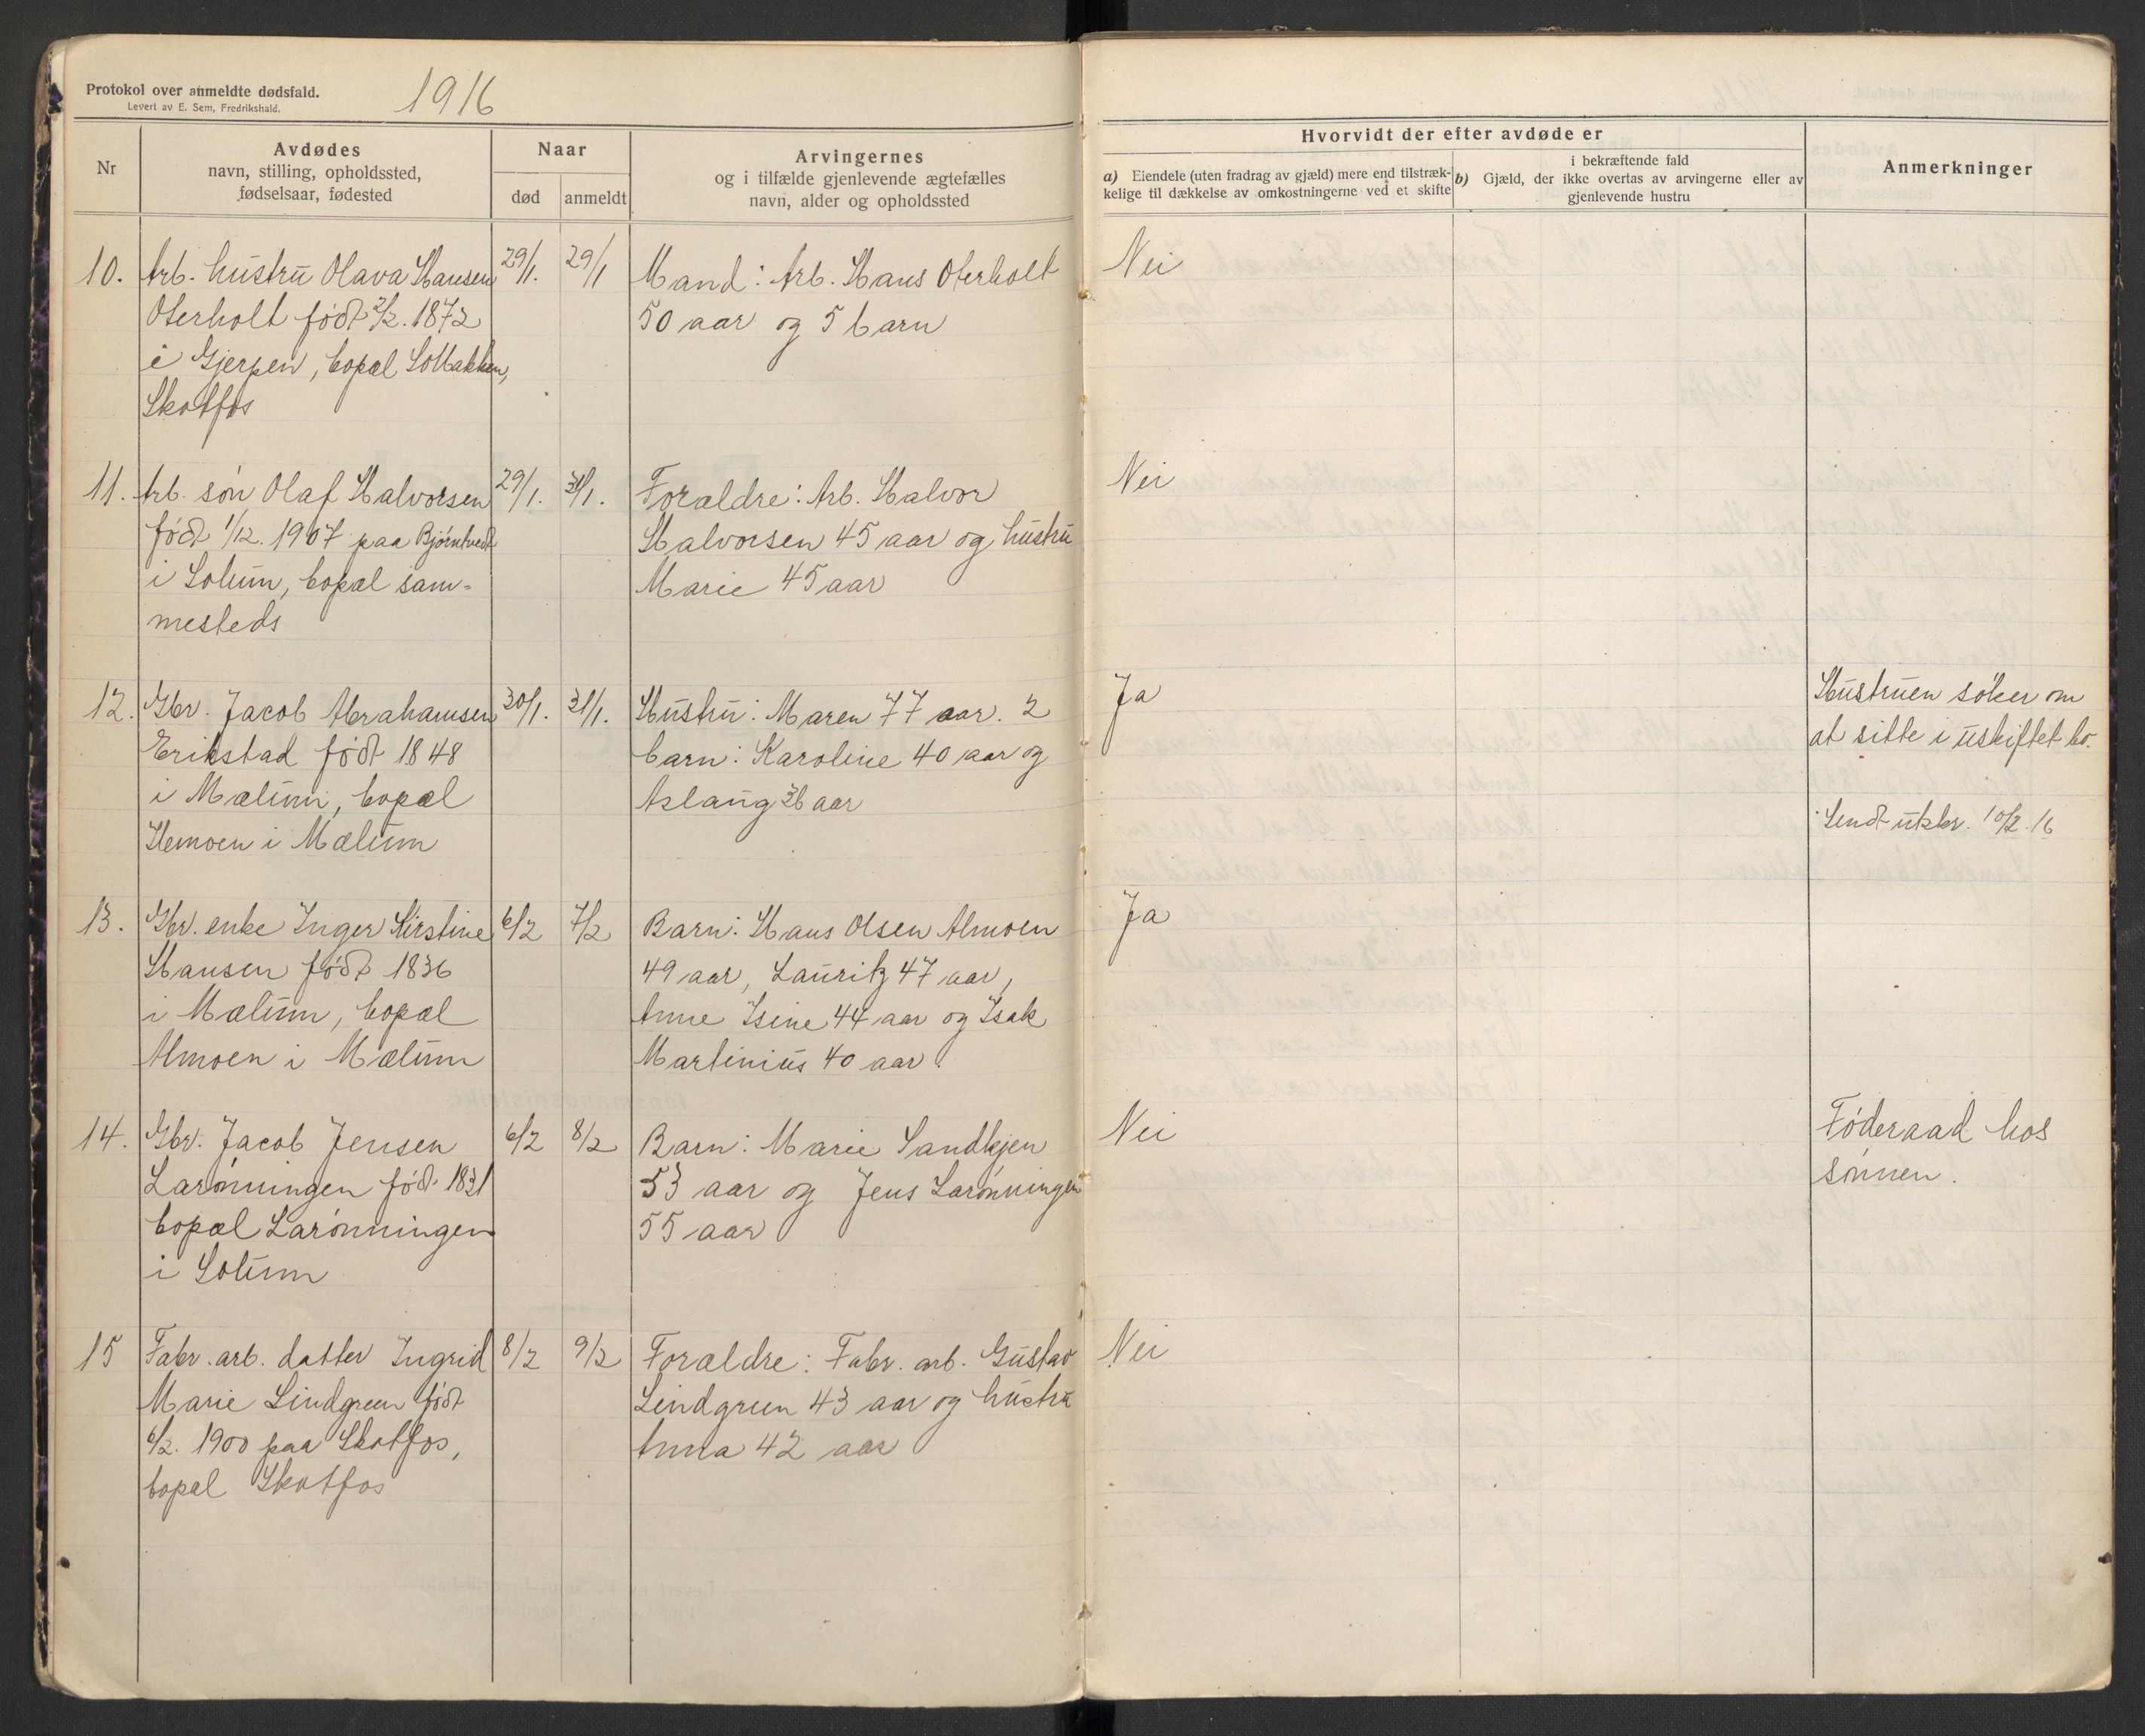 Protokol over anmeldte dødsfald.
Levert av E. Sem, Fredrikshald.
1916
Nr
Avdødes
navn, stilling, opholdssted,
fødselsaar, fødested
Naar
død
anmeldt
Arvingernes
og i tilfælde gjenlevende ægtefælles
navn, alder og opholdssted
Hvorvidt der efter avdøde er
a) Eiendele (uten fradrag av gjæld) mere end tilstræk-
kelige til dækkelse av omkostningerne ved et skifte
i bekræftende fald
b) Gjæld, der ikke overtas av arvingerne eller av
gjenlevende hustru
Anmerkninger
10.
Arb. hustru Olava Hansen
Oterholt født 2/2. 1872
i Gjerpen, bopæl Solbakken,
Skotfos
29/1.
29/1
Mand: Arb. Hans Oterholt
50 aar og 5 barn
Nei
11.
Arb. søn Olaf Halvorsen
født 1/12. 1907 paa Bjørntvedt
i Solum, bopæl sam-
mesteds
29/1.
31/1.
Forældre: Arb. Halvor
Halvorsen 45 aar og hustru
Marie 45 aar
Nei
12.
Gbr. Jacob Abrahamsen
Erikstad født 1848
i Mælum, bopæl
Hemoen i Mælum
30/1.
31/1.
Hustru: Maren 77 aar. 2
barn: Karoline 40 aar og
Aslaug 36 aar
Ja
Hustruen søker om
at sitte i uskiftet bo.
Sendt utskr. 10/2. 16
13.
Gbr. enke Inger Kirstine
Hansen født 1836
i Mælum, bopæl
Almoen i Mælum
6/2
7/2
Barn: Hans Olsen Almoen
49 aar, Lauritz 47 aar,
Anne Isine 44 aar og Isak
Martinius 40 aar.
Ja
14.
Gbr. Jacob Jensen
Larønningen født 1831
bopæl Larønningen
i Solum
6/2
8/2
Barn: Marie Sandkjen
53 aar og Jens Larønningen
55 aar
Nei
Føderaad hos
sønnen.
15
Fabr. arb. datter Ingrid
Marie Lindgreen født
6/2. 1900 paa Skotfos,
bopæl Skotfos
8/2
9/2
Forældre: Fabr. arb. Gustav
Lindgreen 43 aar og hustru
Anna 42 aar
Nei